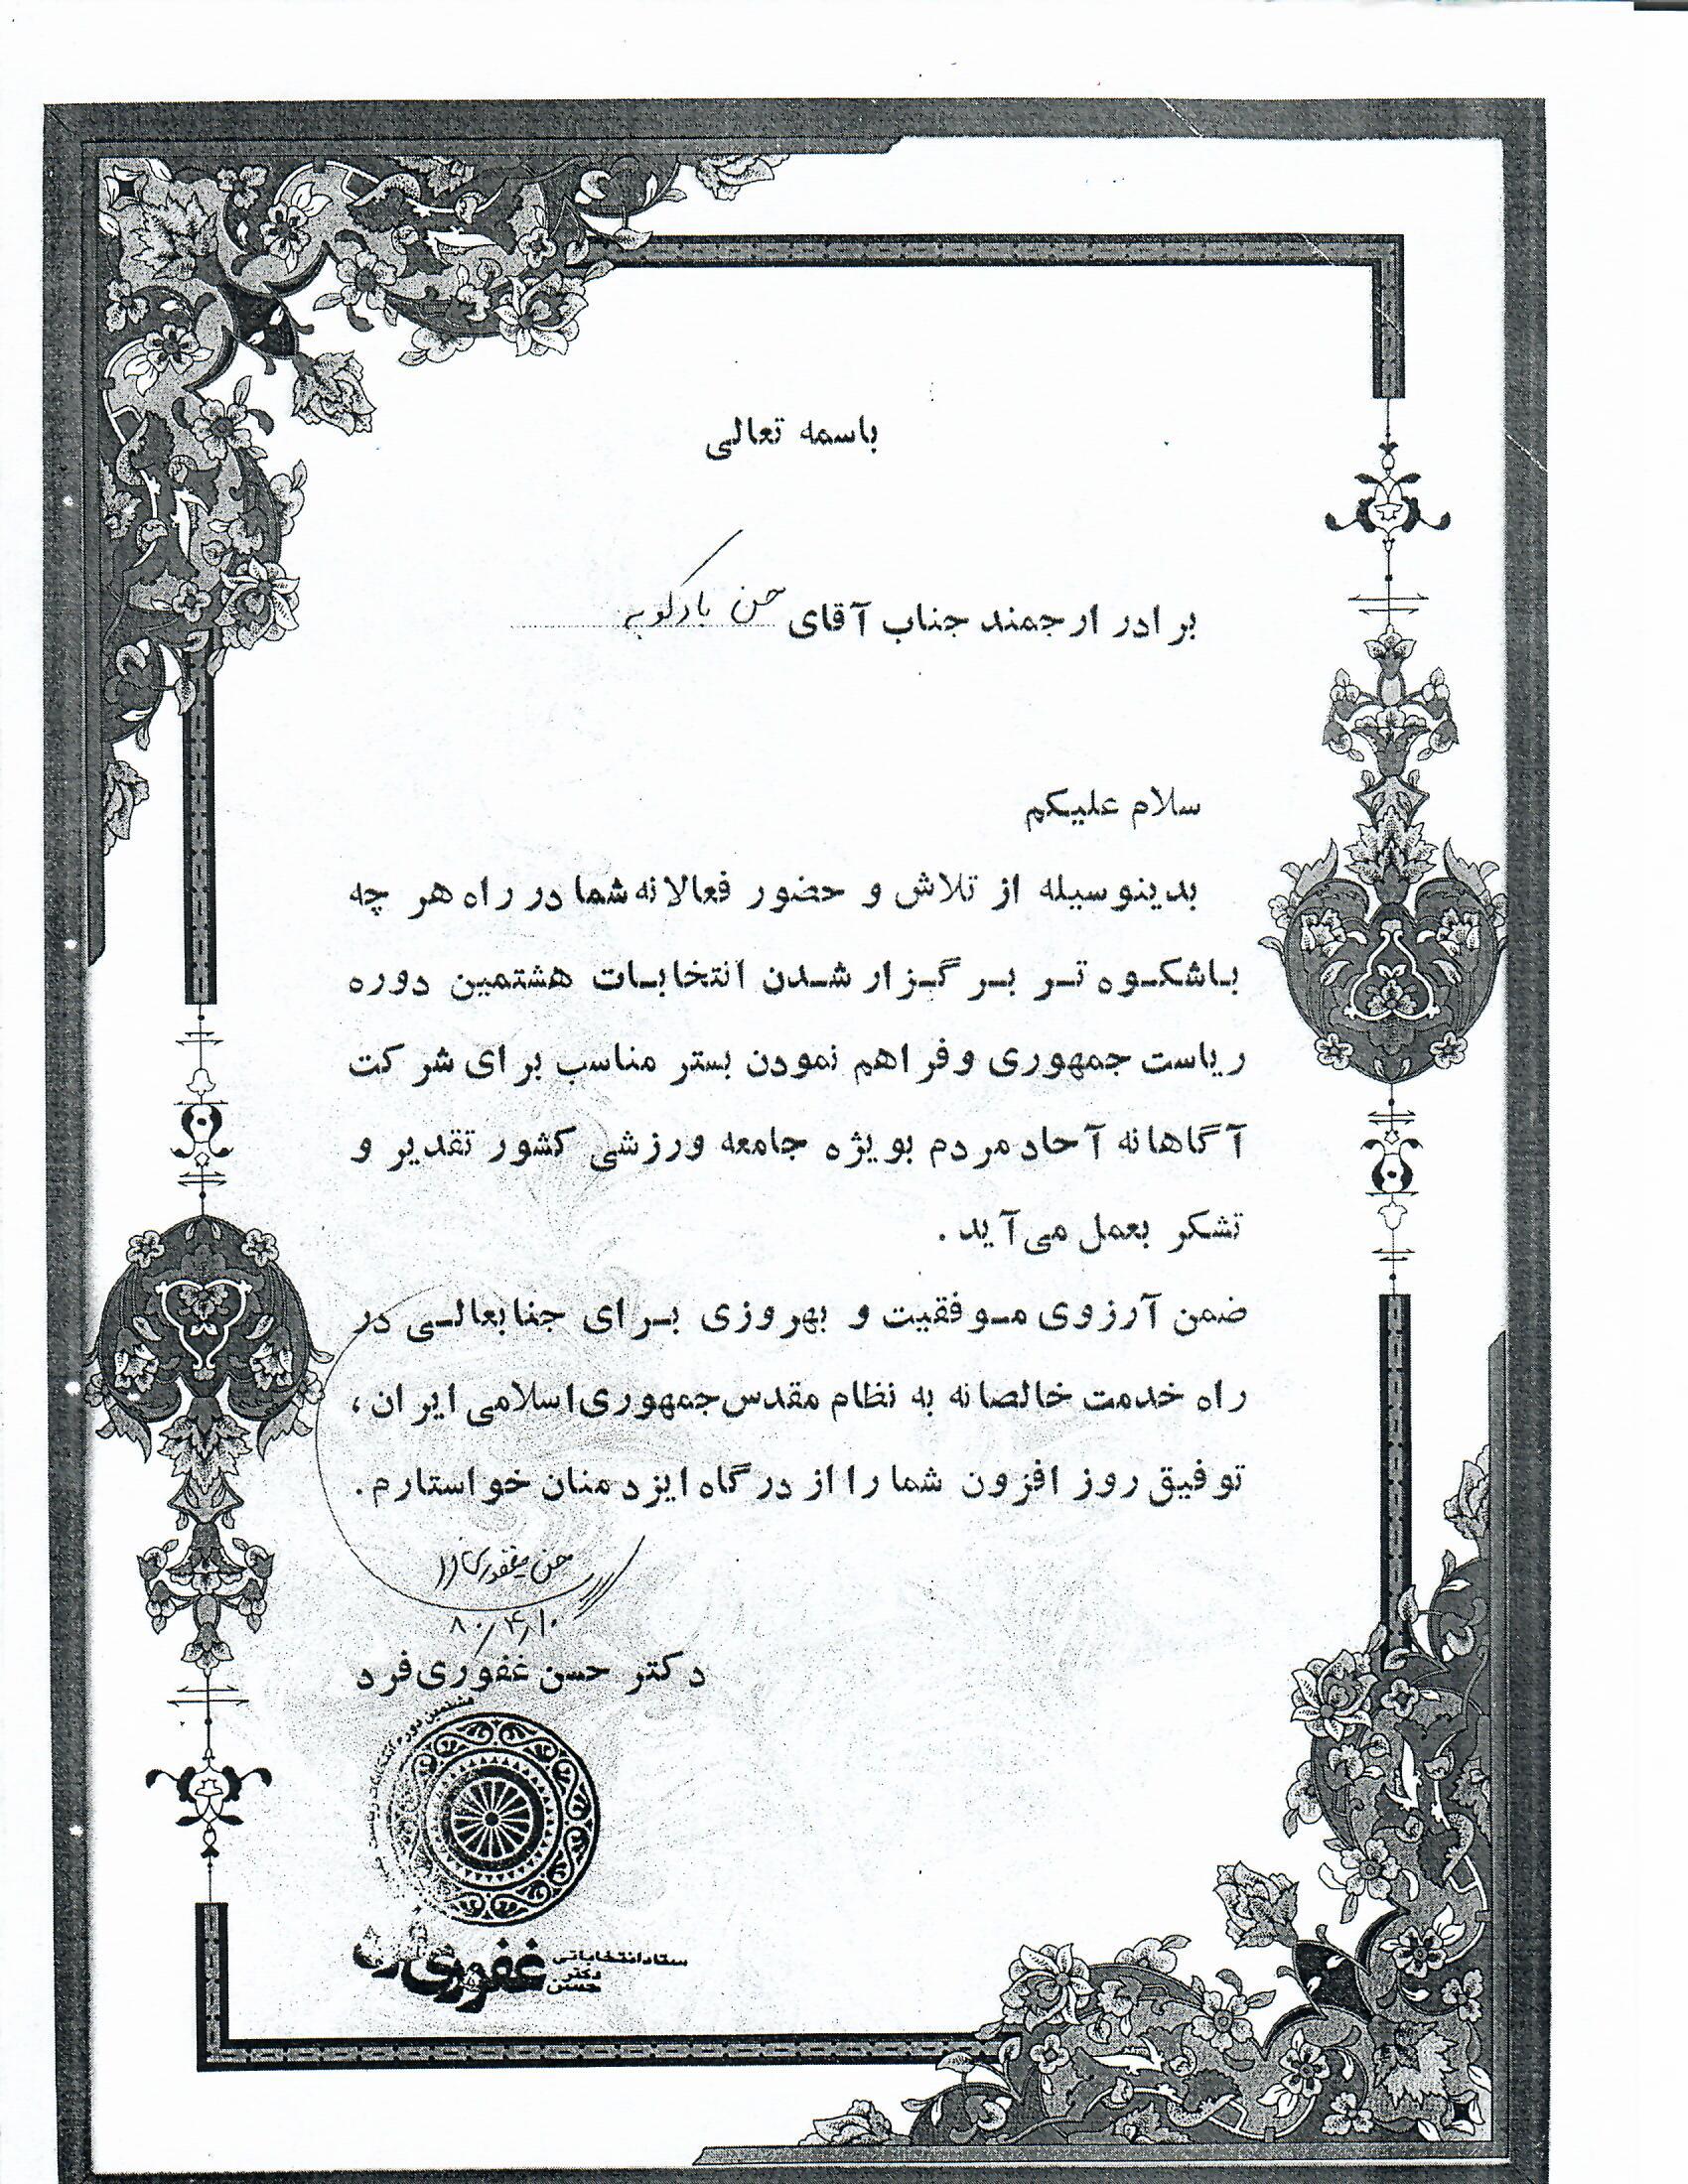 باسمه تعالی
برادر ارجمند جناب آقای حسن بارکوبه
سلام علیکم
بدینوسیله از تلاش و حضور فعالانه شما در راه هر چه
باشکوه تر برگزار شدن انتخابات هشتمین دوره
ریاست جمهوری و فراهم نمودن بستر مناسب برای شرکت
آگاهانه آحاد مردم بویژه جامعه ورزشی کشور تقدیر و
تشکر بعمل می‌آید.
ضمن آرزوی موفقیت و بهروزی برای جنابعالی در
راه خدمت خالصانه به نظام مقدس جمهوری اسلامی ایران،
توفیق روز افزون شما را از درگاه ایزد منان خواستارم.
۸۰/۴/۱۰
دکتر حسن غفوری فرد
هشتمین دوره انتخابات ریاست
ستاد انتخاباتی
دکتر
حسن
غفوری